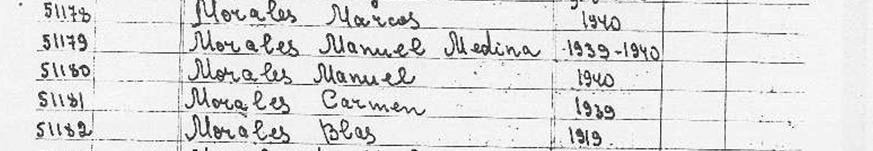 51178 Morales Marcos 1940
51179 Morales Manuel Medina 1939-1940
51180 Morales Manuel 1940
51181 Morales Carmen 1939
51182 Morales Blas 1919